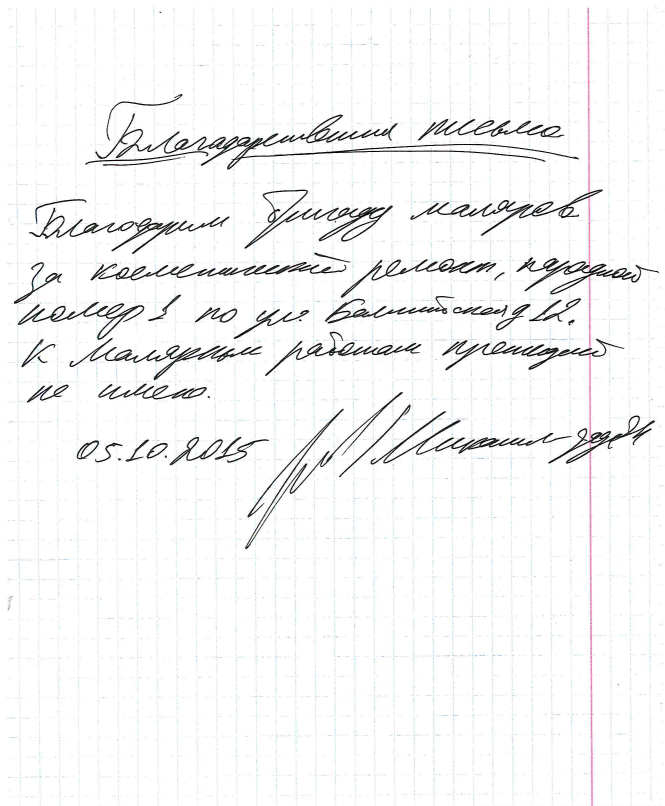 Благодарственная письмо
Благодарим бригаду маляров
за косметический ремонт, парадной
номер 1 по ул. Балтийская д 12.
К малярным работам претензий
не имею.
05.10.2015